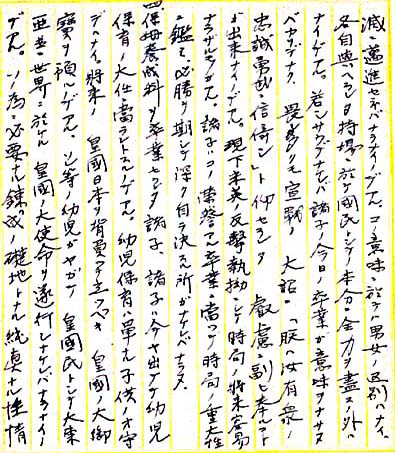 滅ニ邁進セネバナラナイノデアル。コノ意味ニ於テ男女ノ区別ハナイ。
各自与ヘラレタ持場ニ於テ国民トシテノ本分ニ全力ヲ盡ス外ハ
ナイノデアル。若シサウデナケレバ諸子ノ今日ノ卒業ガ意味ヲナサヌ
ベカリデナク 畏多クモ宣戦ノ大詔ニ「朕ハ汝有衆ノ
忠誠勇武ニ信倚シ」ト仰セラレタ 叡慮ニ副ヒ奉ルコト
ガ出来ナイノデアル。現下米英ノ反撃執拗ニシテ時局ノ将来容易
ナラザルモノガアル。諸子ハコノ栄誉アル卒業ニ当ツテ時局ノ重大性
ニ鑑ミ、必勝ヲ期シテ深ク自ラ決スル所ガナケレバナラヌ。
四、保姆養成科ヲ卒業セラルヽ諸子、諸子ハ今ヤ出デヽ幼児
保育ノ大任ニ当ラントスルノデアル。幼児保育ハ単ナル子供ノオ守
デハナイ、将来ノ 皇国日本ヲ背負ツテ立ツベキ 皇国ノ大御
宝ヲ預ルノデアル。之等ノ幼児ガヤガテ 皇国民トシテ大東
亜ニ世界ニ於ケル 皇国ノ大使命ヲ遂行シナケレバナラナイノ
デアル。ソノ為ニ必要ナル錬成ノ礎地トナル純真ナル性情